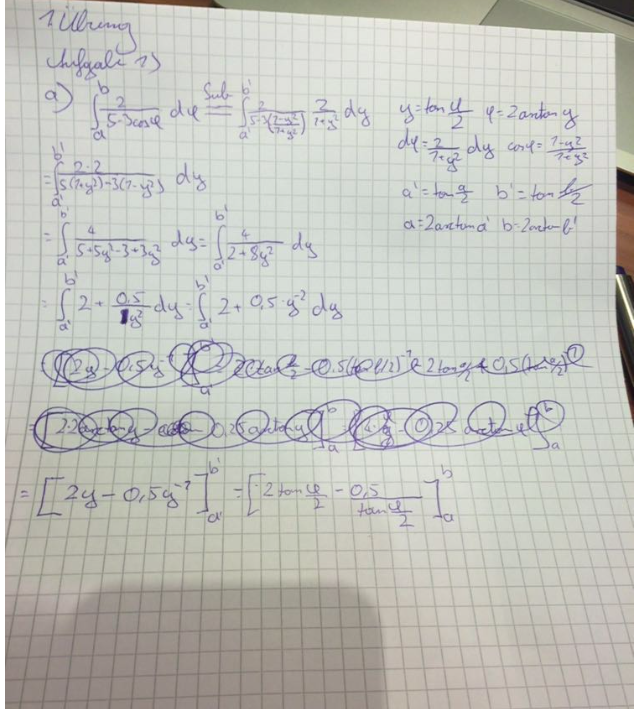 1 Übung
Aufgabe 1)
a) ∫_a^b 2/(5-3cosφ) dφ =^Sub ∫_a'^b' 2/(5-3((1-y²)/(1+y²))) 2/(1+y²) dy
y=tan φ/2 φ=2arctan y
dφ=2/(1+y²) dy cosφ=(1-y²)/(1+y²)
a'=tan a/2 b'=tan b/2
a=2arctan a' b=2arctan b'
=∫_a'^b' 2·2/(5(1+y²)-3(1-y²)) dy
=∫_a'^b' 4/(5+5y²-3+3y²) dy=∫_a'^b' 4/(2+8y²) dy
=∫_a'^b' 2+0,5/y² dy=∫_a'^b' 2+0,5·y⁻² dy
=[2y-0,5y⁻¹]_a'^b' =[2tan φ/2 - 0,5/(tan φ/2)]_a^b